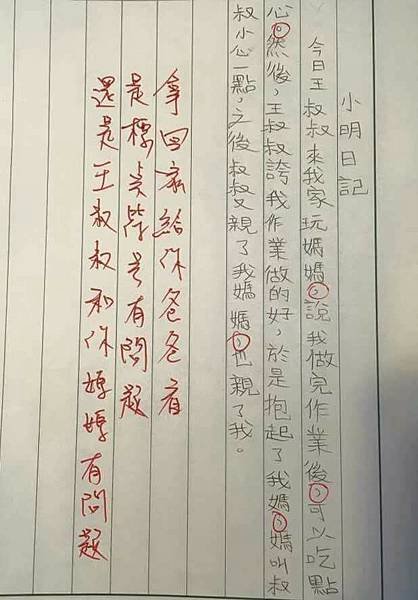 小明日記
今日王叔叔來我家玩媽媽，說我做完作業後，可以吃點
心。然後，王叔叔誇我作業做的好，於是抱起了我媽，媽叫叔
叔小心一點，之後叔叔又親了我媽媽，也親了我。
拿回家給你爸爸看
是標点符号有問題
還是王叔叔和你媽媽有問題